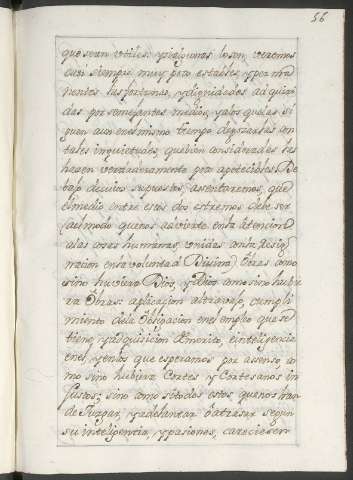 56
que sean utiles: y si algunas lo son, veremos
casi siempre muy poco estables, y perma
nentes las fortunas, y dignidades adquiri
das por semejantes medios, ya los quales si
guen aun en el mismo tiempo de gozarlas an
tales inquietudes, que bien consideradas les
hazen verdaderamente poco apetecibles. De
bajo de cuios supuestos, asentaremos, que
el medio entre estos dos estremos debe ser
(al modo que nos advierte en la atencion
a las cosas humanas, unidas con la Resig
nacion en la voluntad Divina) Obras como
si no huviera Dios, y Dios como si no hubie
ra Obras: aplicacion al travajo, cumpli
miento de la Obligacion en el empleo que se
tiene, y adquisicion de merito, e inteligencia
en el, y en los que esperamos por ascenso, co
mo si no hubiera Cortes y Cortesanos in
justos; sino como si todos estos, que nos han
de Juzgar, y adelantar o atrasar segun
su inteligencia, y pasiones, careciesen